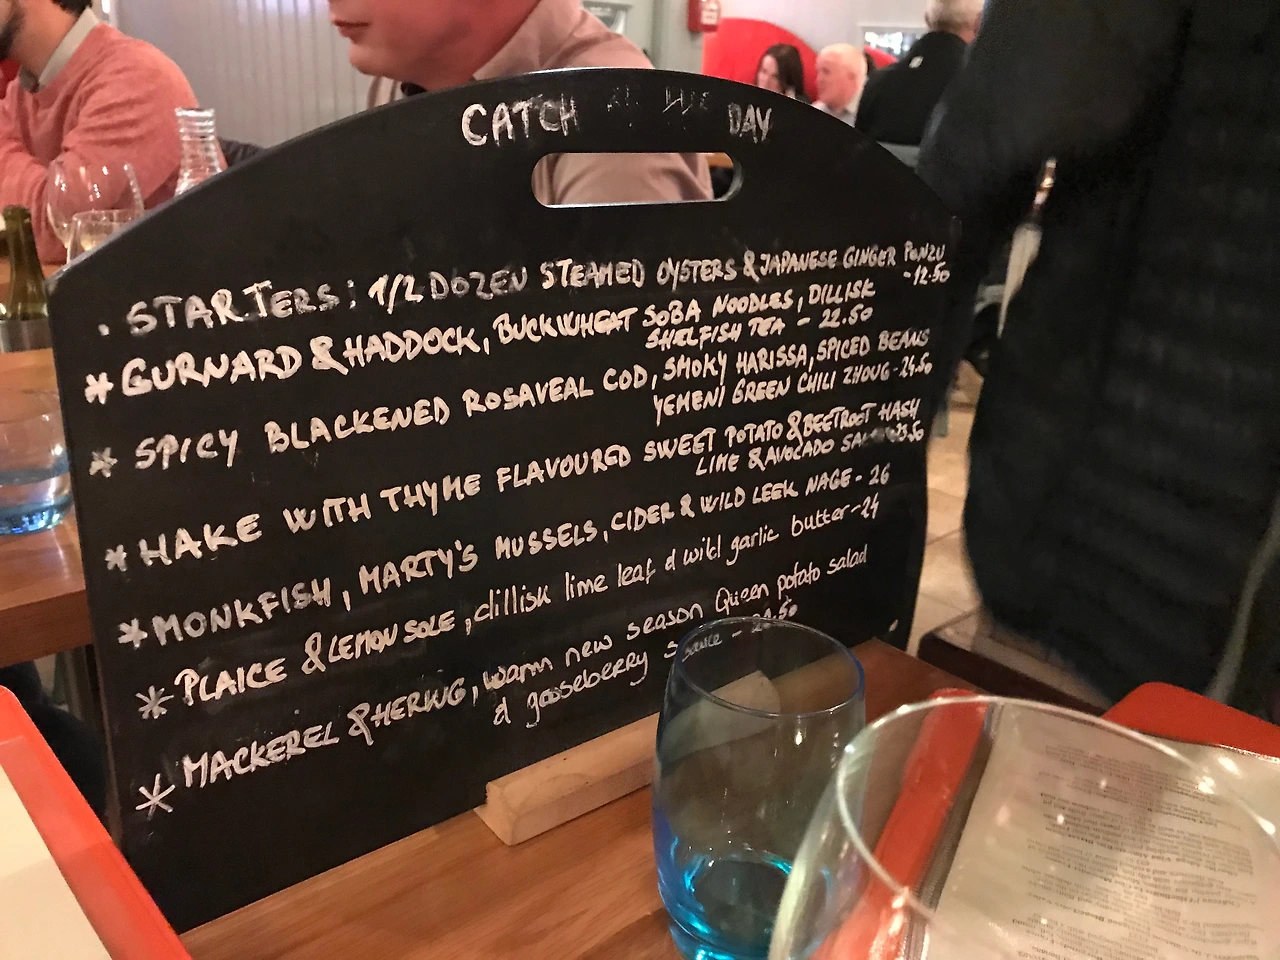 CATCH OF THE DAY
· STARTERS: 1/2 DOZEN STEAMED OYSTERS & JAPANESE GINGER PONZU
-12.50
* GURNARD & HADDOCK, BUCKWHEAT SOBA NOODLES, DILLISK
SHELFISH TEA - 22.50
* SPICY BLACKENED ROSAVEAL COD, SMOKY HARISSA, SPICED BEANS
YEMENI GREEN CHILI ZHOUG - 24.50
* HAKE WITH THYME FLAVOURED SWEET POTATO & BEETROOT HASH
LIME & AVOCADO 23.50
* MONKFISH, MARTY'S MUSSELS, CIDER & WILD LEEK NAGE - 26
* PLAICE & LEMON SOLE, dillisk lime leaf & wild garlic butter - 24
* MACKEREL & HERING, warm new season Queen potato salad
& gooseberry sauce -